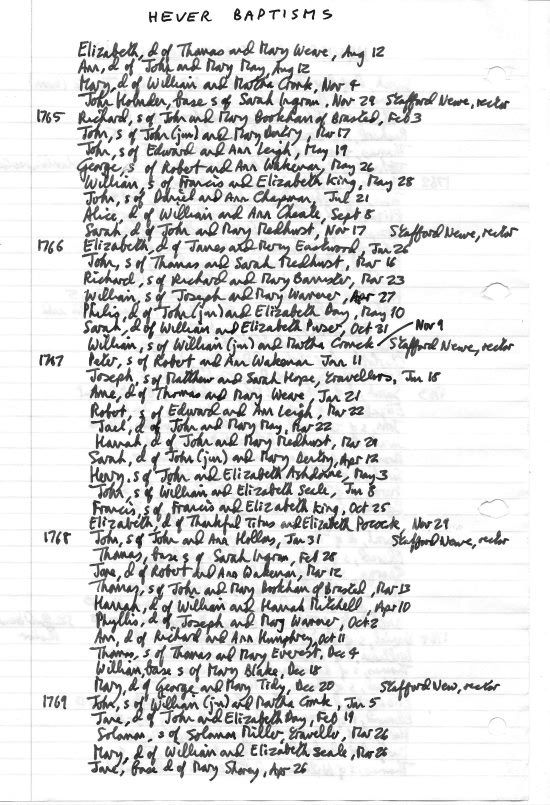 HEVER BAPTISMS
Elizabeth, d of Thomas and Mary Weave, Aug 12
Ann, d of John and Mary May, Aug 12
Mary, d of William and Martha Cronk, Nov 4
John Holmden, base s of Sarah Ingram, Nov 29 Stafford Newe, rector
1765 Richard, s of John and Mary Bookham of Brasted, Feb 3
John, s of John (jun) and Mary Dentry, Mar 17
John, s of Edward and Ann Leigh, May 19
George, s of Robert and Ann Wakenar, May 26
William, s of Francis and Elizabeth King, May 28
John, s of Daniel and Ann Chapman, Jul 21
Alice, d of William and Ann Cheale, Sept 8
Sarah, d of John and Mary Medhurst, Nov 17 Stafford Newe, rector
1766 Elizabeth, d of James and Mercy Eastwood, Jan 26
John, s of Thomas and Sarah Medhurst, Mar 16
Richard, s of Richard and Mary Bannister, Mar 23
William, s of Joseph and Mary Warener, Apr 27
Philip, d of John (jun) and Elizabeth Day, May 10
Sarah, d of William and Elizabeth Purser, Oct 31
William, s of William (jun) and Martha Cronck / Nov 9 Stafford Newe, rector
1767 Peter, s of Robert and Ann Wakenar Jan 11
Joseph, s of Matthew and Sarah Hope, travellers, Jan 18
Anne, d of Thomas and Mary Weave, Jan 21
Robert, s of Edward and Ann Leigh, Mar 22
Jael, d of John and Mary May, Mar 22
Hannah, d of John and Mary Medhurst, Mar 29
Sarah, d of John (jun) and Mary Dentry, Apr 12
Henry, s of John and Elizabeth Ashdowne, May 3
John, s of William and Elizabeth Seale, Jun 8
Francis, s of Francis and Elizabeth King, Oct 25
Elizabeth, d of Thankful Titus and Elizabeth Pocock, Nov 29
1768 John, s of John and Ann Hollas, Jan 31 Stafford Newe, rector
Thomas, base s of Sarah Ingram, Feb 28
Jane, d of Robert and Ann Wakenar, Mar 12
Thomas, s of John and Mary Bookham of Brasted, Mar 13
Hannah, d of William and Hannah Mitchell, Apr 10
Phyllis, d of Joseph and Mary Warener, Oct 2
Ann, d of Richard and Ann Humphrey, Oct 11
Thomas, s of Thomas and Mary Everest, Dec 4
William, base s of Mary Blake, Dec 18
Mary, d of George and Mary Tidy, Dec 20 Stafford New, rector
1769 John, s of William (jun) and Martha Cronk, Jan 5
Jane, d of John and Elizabeth Day, Feb 19
Soloman, s of Soloman Miller, traveller, Mar 26
Mary, d of William and Elizabeth Seale, Mar 26
Jane, base d of Mary Shorey, Apr 26